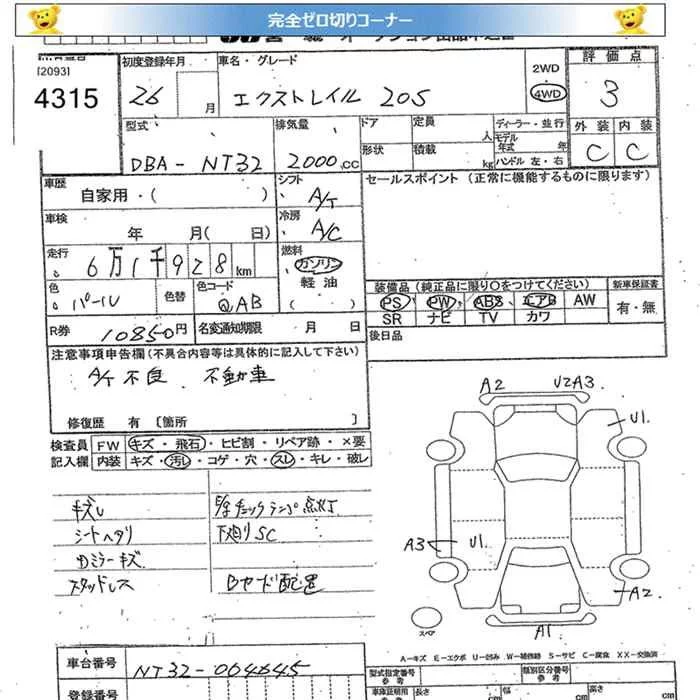 完全ゼロ切りコーナー
[2093]
4315
初度登録年月
26 月
車名・グレード
エクストレイル 20S
2WD
4WD
評価点
3
外装 内装
C C
型式
DBA-NT32
排気量
2000.cc
ドア
形状
定員
人
積載
kg
ディーラー・並行
モデル年式 年
ハンドル 左・右
車歴
自家用・( )
シフト
A/T
セールスポイント (正常に機能するものに限ります)
車検
年 月( 日)
冷房
A/C
走行
6万1千928km
燃料
ガソリン
軽油
( )
色
パール
色替
色コード
QAB
装備品(純正品に限り○をつけてください)
PS PW ABS エアB AW
SR ナビ TV カワ
新車保証書
有・無
R券
10850円
名変通知期限 月 日
後日品
注意事項申告欄(不具合内容等は具体的に記入して下さい)
A/T不良 不動車
修復歴 有 〔箇所 〕
検査員記入欄
FW キズ・飛石・ヒビ割・リペア跡・×要
内装 キズ・汚レ・コゲ・穴・スレ・キレ・破レ
シートヘタリ
Dミラーキズ
スタッドレス
チェックランプ点灯
下廻りSC
A2 U2A3
U1
A3 U1
A2
A1
スペア
A-キズ E-エクボ U-凹み W-補修跡 S-サビ C-腐食 XX-交換済
車台番号
NT32-064645
登録番号
型式指定番号
参考
類別区分番号
参考
車庫証明用
参考
長さ
cm
高さ
cm